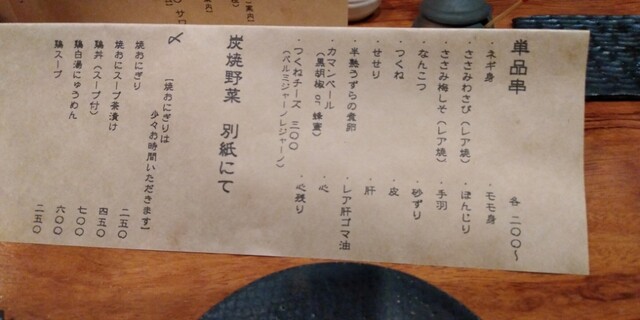 単品串 各 二〇〇〜
・ネギ身 ・モモ身
・ささみわさび(レア焼) ・ぼんじり
・ささみ梅しそ(レア焼) ・手羽
・なんこつ ・砂ずり
・つくね ・皮
・せせり ・肝
・半熟うずらの煮卵 ・レア肝ゴマ油
・カマンベール ・心
(黒胡椒 or 蜂蜜)
・つくねチーズ 三〇〇 ・心残り
(パルミジャーノレジャーノ)
炭焼野菜 別紙にて
〆 【焼おにぎりは
少々お時間いただきます】
焼おにぎり 二五〇
焼おにスープ茶漬け 四五〇
鶏丼(スープ付) 七〇〇
鶏白湯にゅうめん 六〇〇
鶏スープ 二五〇